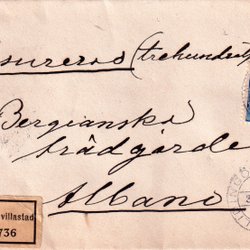 sureras (trehundra
Bergianska
trädgården
Albano
villastad
736